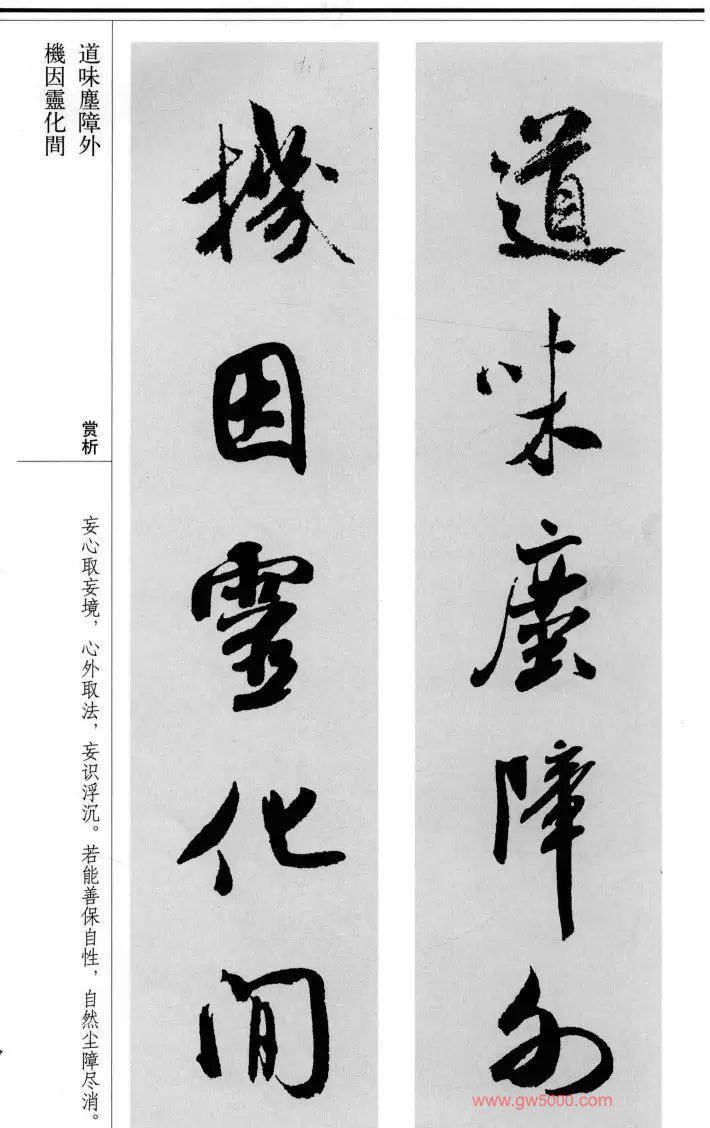 道味塵障外
機因靈化間
道味塵障外
機因靈化間
赏析
妄心取妄境，心外取法，妄识浮沉。若能善保自性，自然尘障尽消。
www.gw5000.com